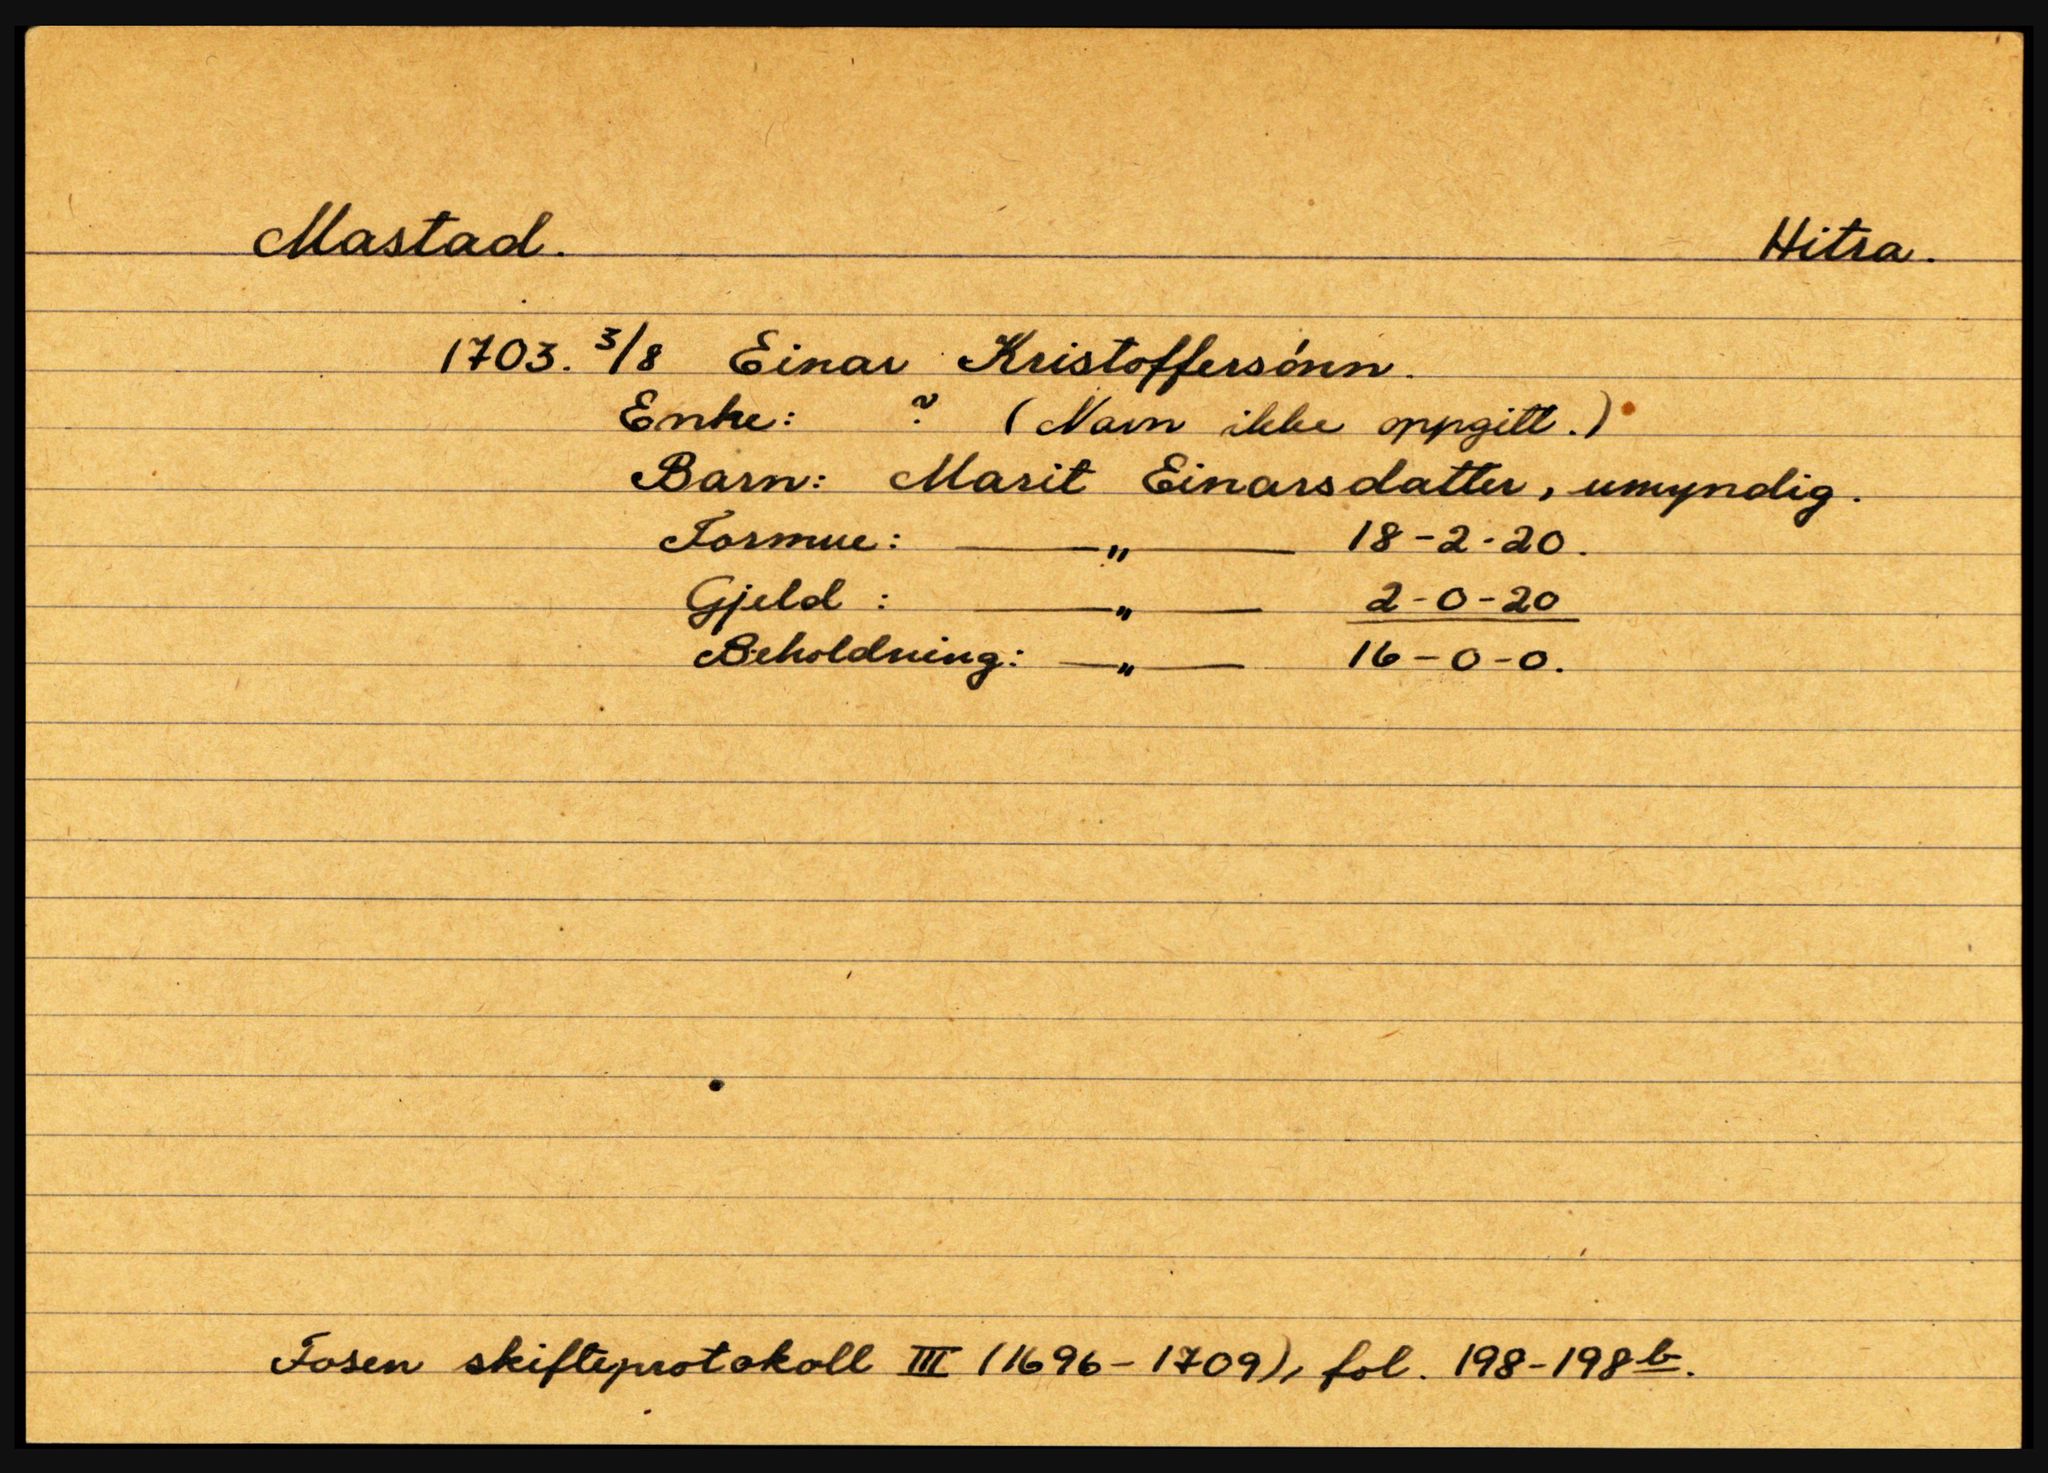 Mastad. Hitra.
1703. 3/8 Einar Kristoffersönn.
Enke: ? (Navn ikke oppgitt.)
Barn: Marit Einarsdatter, umyndig.
Formue: — „ — 18-2-20.
Gjeld : — „ — 2-0-20
Beholdning: — „ — 16-0-0.
Fosen skifteprotokoll III (1696-1709), fol. 198-198b.